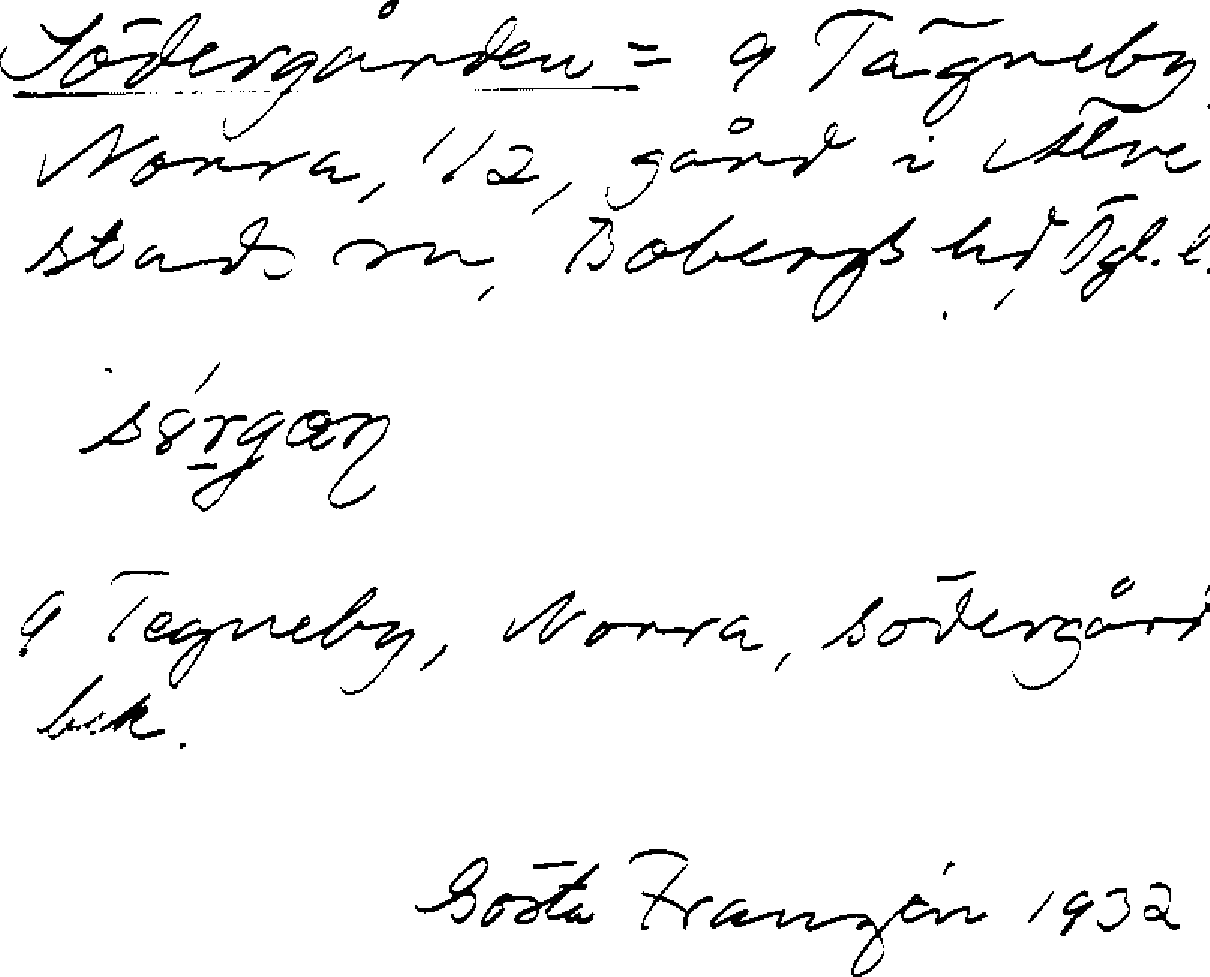 Södergården = 9 Tägneby,
Norra, 1/2, gård i Älve
stads sn, Bobergs hd, Ögl. l.
sörgan
9 Tegneby, Norra, södergård
bek.
Gösta Franzén 1932